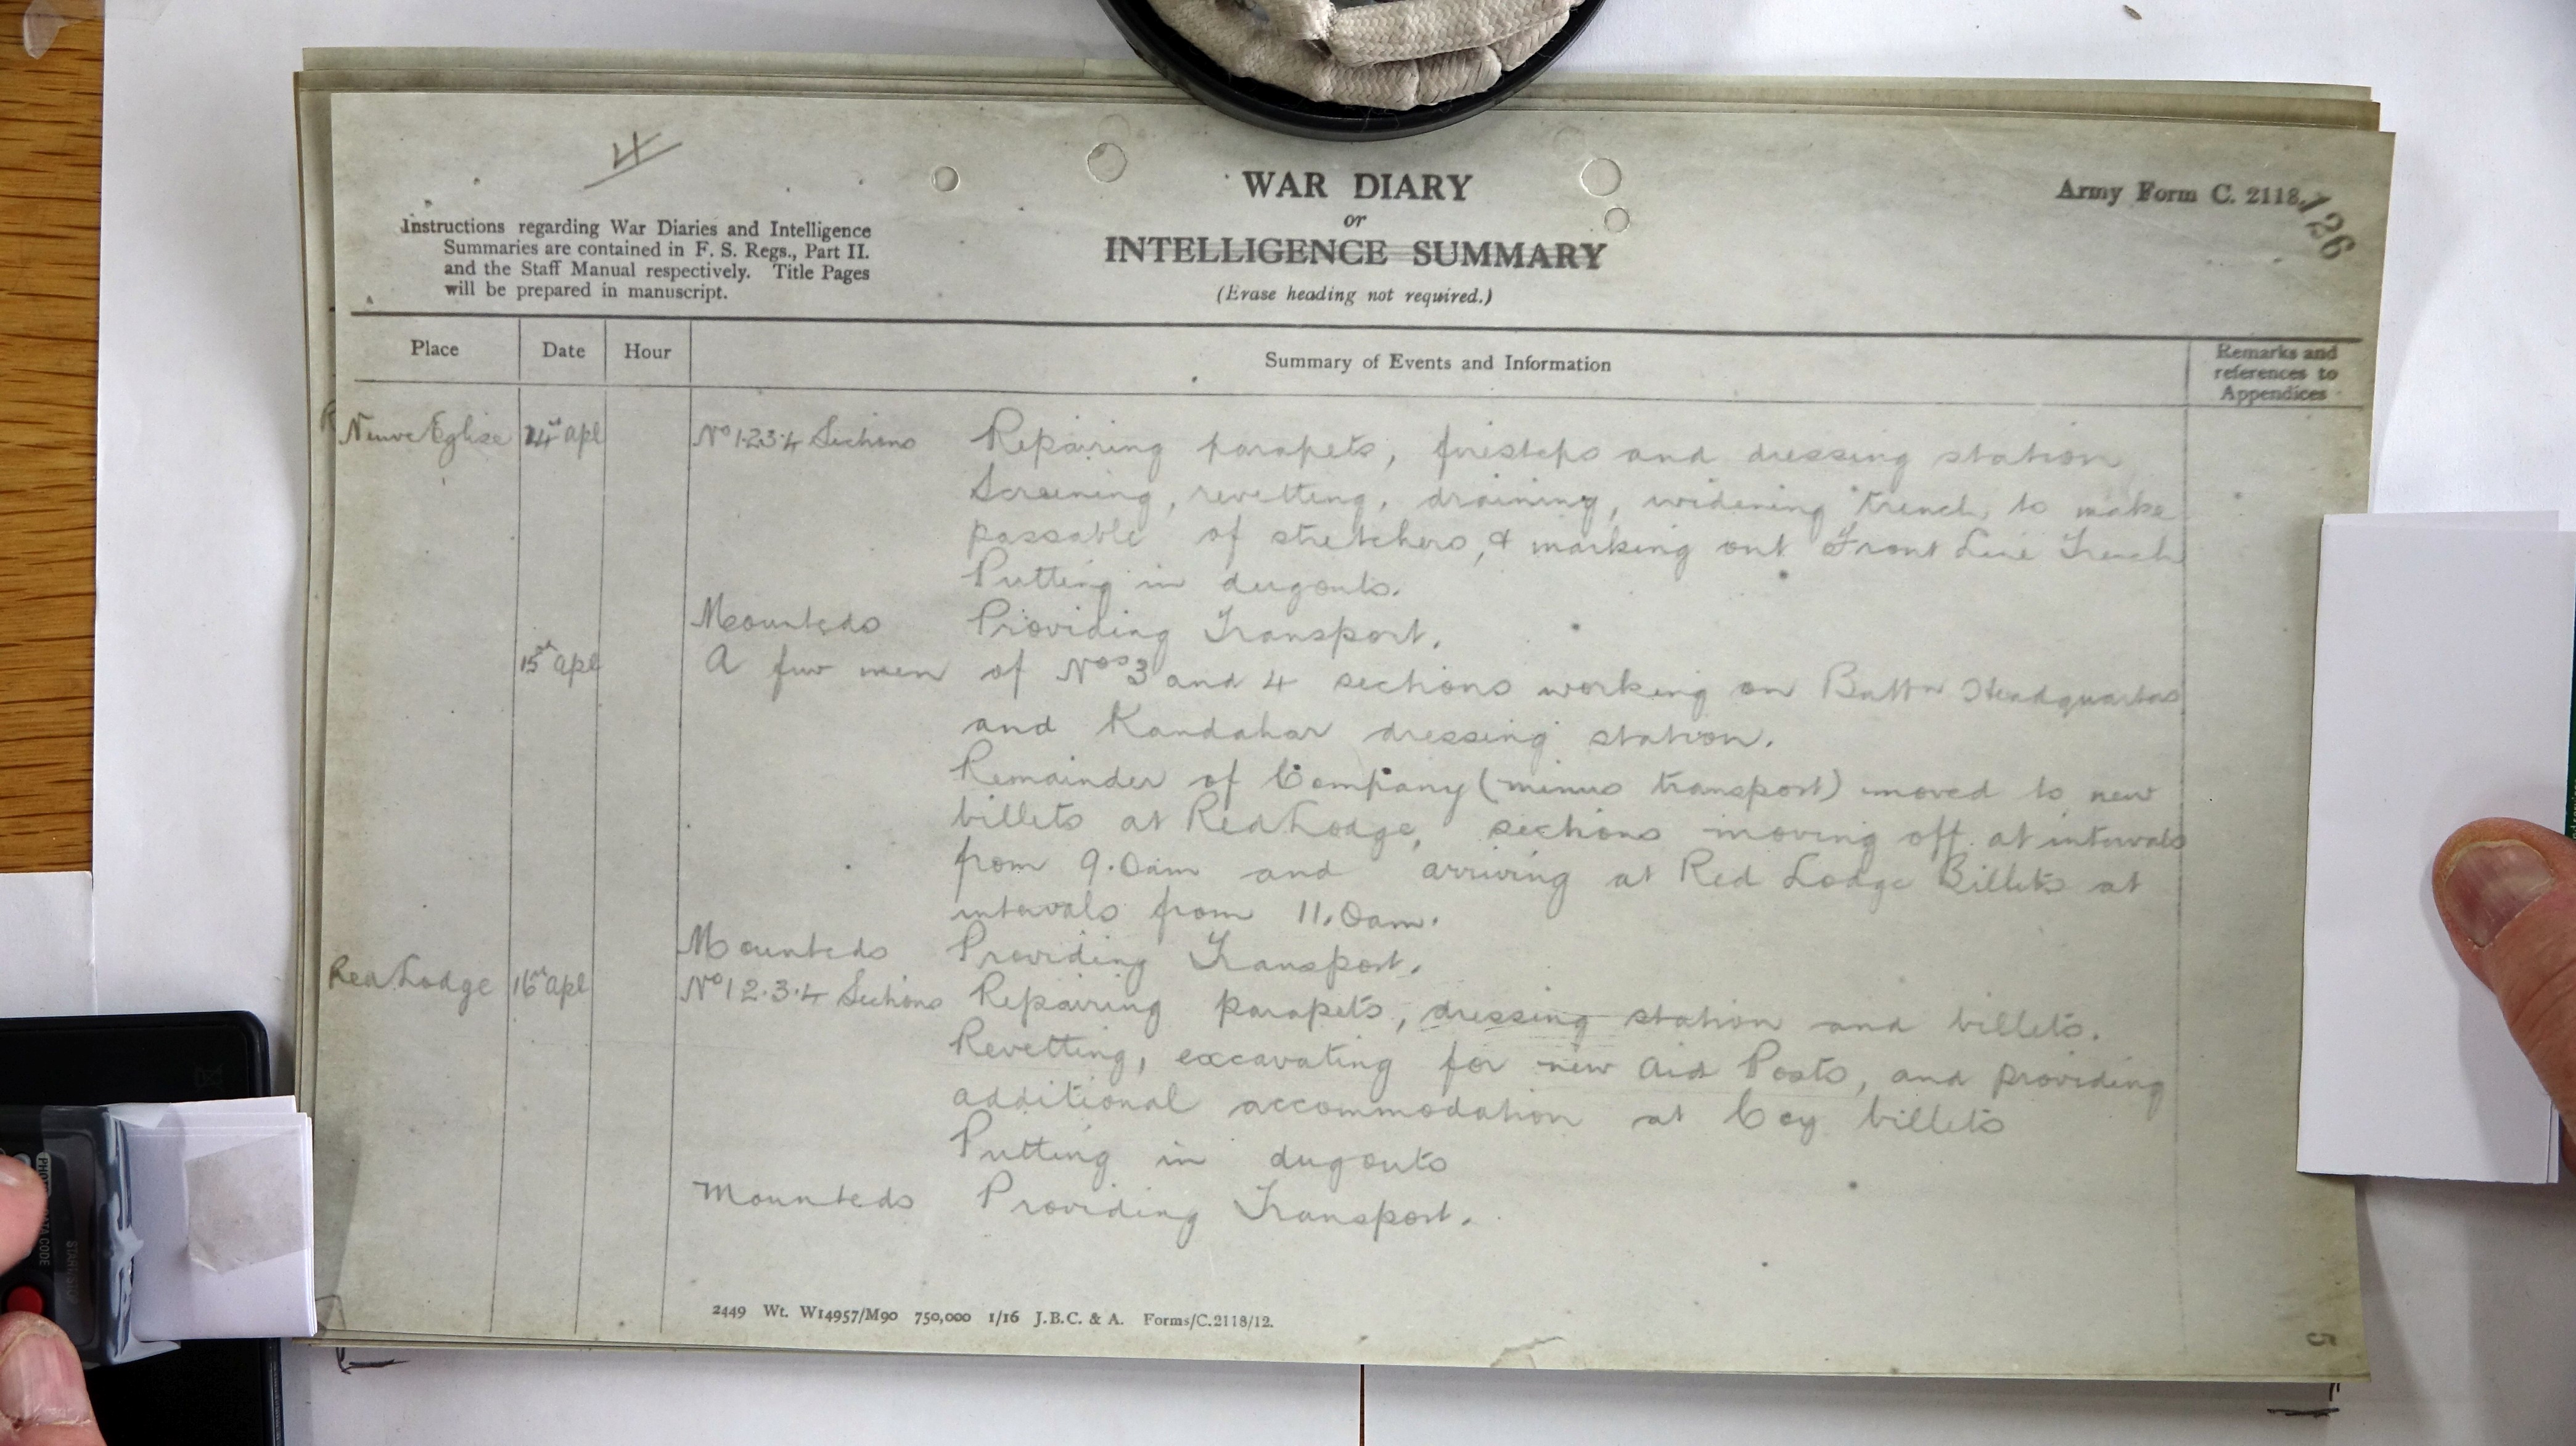 4
WAR DIARY
or
INTELLIGENCE SUMMARY
(Erase heading not required.)
Army Form C. 2118.
126
Instructions regarding War Diaries and Intelligence
Summaries are contained in F. S. Regs., Part II.
and the Staff Manual respectively. Title Pages
will be prepared in manuscript.
Place Date Hour Summary of Events and Information Remarks and
references to
Appendices
Neuve Eglise 14th Apl No 1.2.3.4 Sections Repairing parapets, firesteps and dressing station
Screening, revetting, draining, widening trench, to make
passable of stretchers, & marking out Front Line Trench
Putting in dugouts.
Mounteds Providing Transport.
15th Apl A few men of Nos 3 and 4 sections working on Battn Headquarters
and Kandahar dressing station.
Remainder of Company (minus transport) moved to new
billets at Red Lodge, sections moving off at intervals
from 9.0am and arriving at Red Lodge Billets at
intervals from 11.0am.
Mounteds Providing Transport.
Red Lodge 16th Apl No 1 2.3.4 Sections Repairing parapets, dressing station and billets.
Revetting, excavating for new Aid Posts, and providing
additional accommodation at Coy billets
Putting in dugouts
Mounteds Providing Transport.
2449 Wt. W14957/M90 750,000 1/16 J.B.C. & A. Forms/C.2118/12.
5